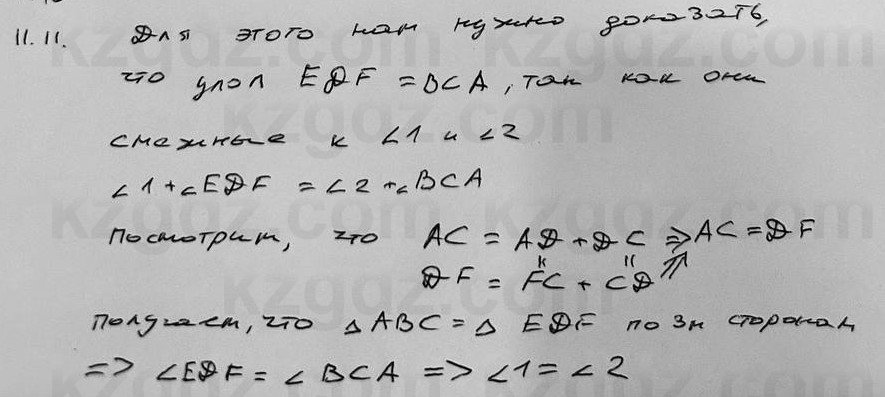 11.11. Для этого нам нужно доказать,
что угол EDF = BCA, так как они
смежные к ∠1 и ∠2
∠1 + ∠EDF = ∠2 + ∠BCA
Посмотрим, что AC = AD + DC ⇒ AC = DF
DF = FC + CD
получаем, что △ABC = △ EDF по 3м сторонам
=> ∠EDF = ∠ BCA => ∠1 = ∠2
kzgdz.com